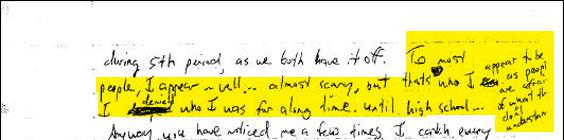 during 5th period, as we both have it off. To most
people, I appear ~ well... almost scary, but thats who I appear to be
as people are afraid of what they don't understand
I denied who I was for along time. until high school...
Anyway, you have noticed me a few times, I catch every